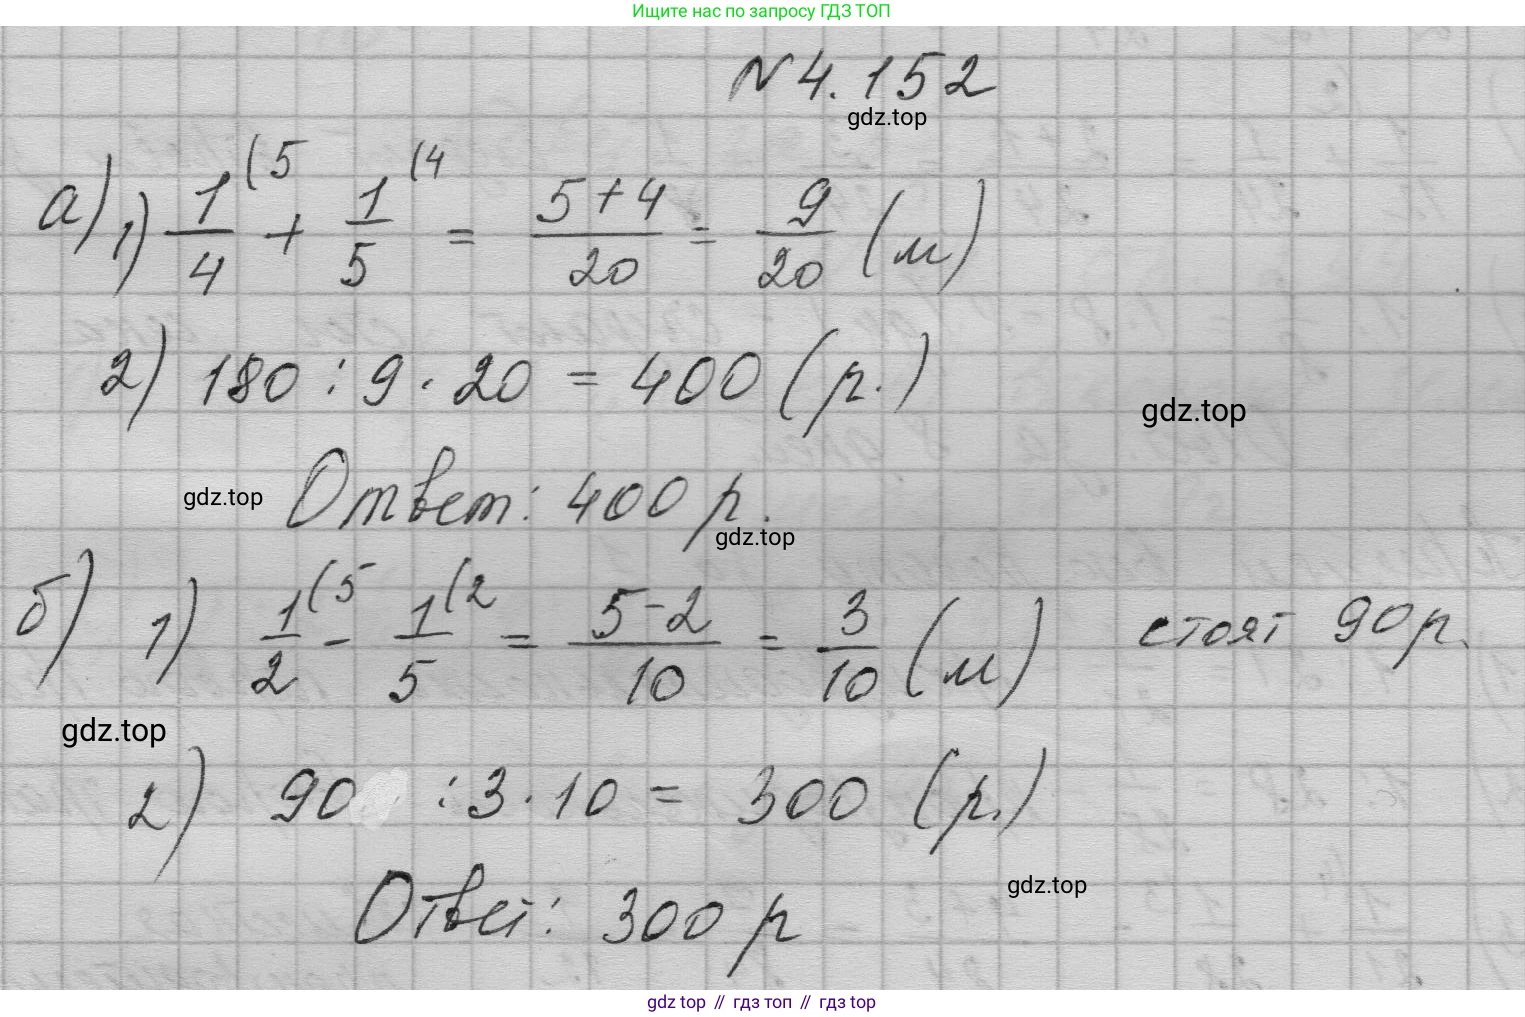 Ищите нас по запросу ГДЗ ТОП
№ 4.152
gdz.top
а) 1) 1/4 (5 + 1/5 (4 = 5+4/20 = 9/20 (м)
2) 180 : 9 · 20 = 400 (р.)
gdz.top
gdz.top
Ответ: 400 р.
gdz.top
б) 1) 1/2 (5 - 1/5 (2 = 5-2/10 = 3/10 (м) стоят 90 р.
gdz.top
2) 90 : 3 · 10 = 300 (р.)
gdz.top
Ответ: 300 р
gdz top // гдз топ // гдз top